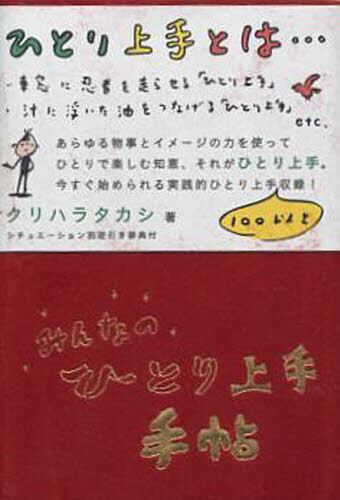 ひとり上手とは…
・車窓に忍者を走らせる「ひとり上手」
・汁に浮いた油をつなげる「ひとり上手」
etc.
あらゆる物事とイメージの力を使って
ひとりで楽しむ知恵、それがひとり上手。
今すぐ始められる実践的ひとり上手収録!
100以上
クリハラタカシ 著
シチュエーション別逆引き辞典付
みんなの
ひとり上手
手帖